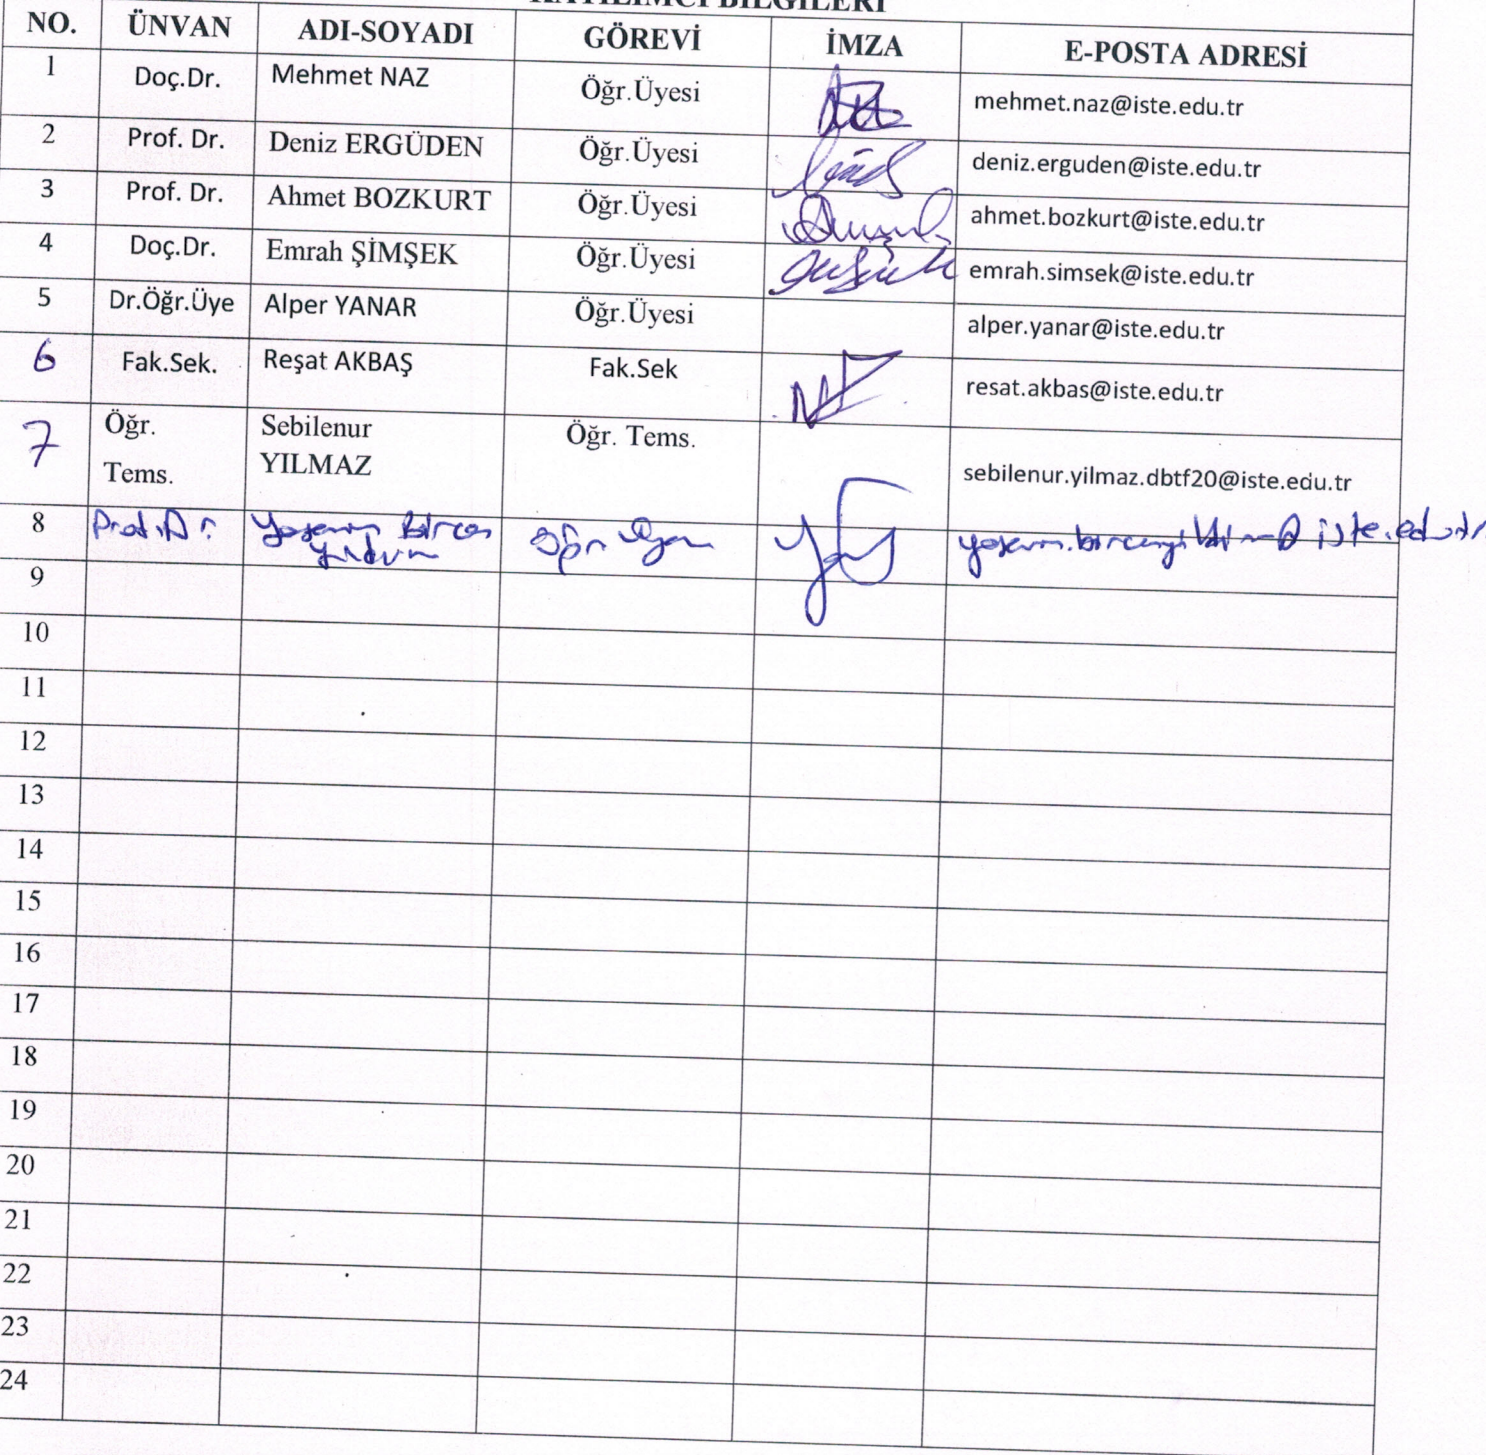 KATILIMCI BİLGİLERİ
NO. ÜNVAN ADI-SOYADI GÖREVİ İMZA E-POSTA ADRESİ
1 Doç.Dr. Mehmet NAZ Öğr.Üyesi mehmet.naz@iste.edu.tr
2 Prof. Dr. Deniz ERGÜDEN Öğr.Üyesi deniz.erguden@iste.edu.tr
3 Prof. Dr. Ahmet BOZKURT Öğr.Üyesi ahmet.bozkurt@iste.edu.tr
4 Doç.Dr. Emrah ŞİMŞEK Öğr.Üyesi emrah.simsek@iste.edu.tr
5 Dr.Öğr.Üye Alper YANAR Öğr.Üyesi alper.yanar@iste.edu.tr
6 Fak.Sek. Reşat AKBAŞ Fak.Sek resat.akbas@iste.edu.tr
7 Öğr. Tems. Sebilenur YILMAZ Öğr. Tems. sebilenur.yilmaz.dbtf20@iste.edu.tr
8 Prof. Dr. Yasemin Bircan Yıldırım
9
10
11
12
13
14
15
16
17
18
19
20
21
22
23
24